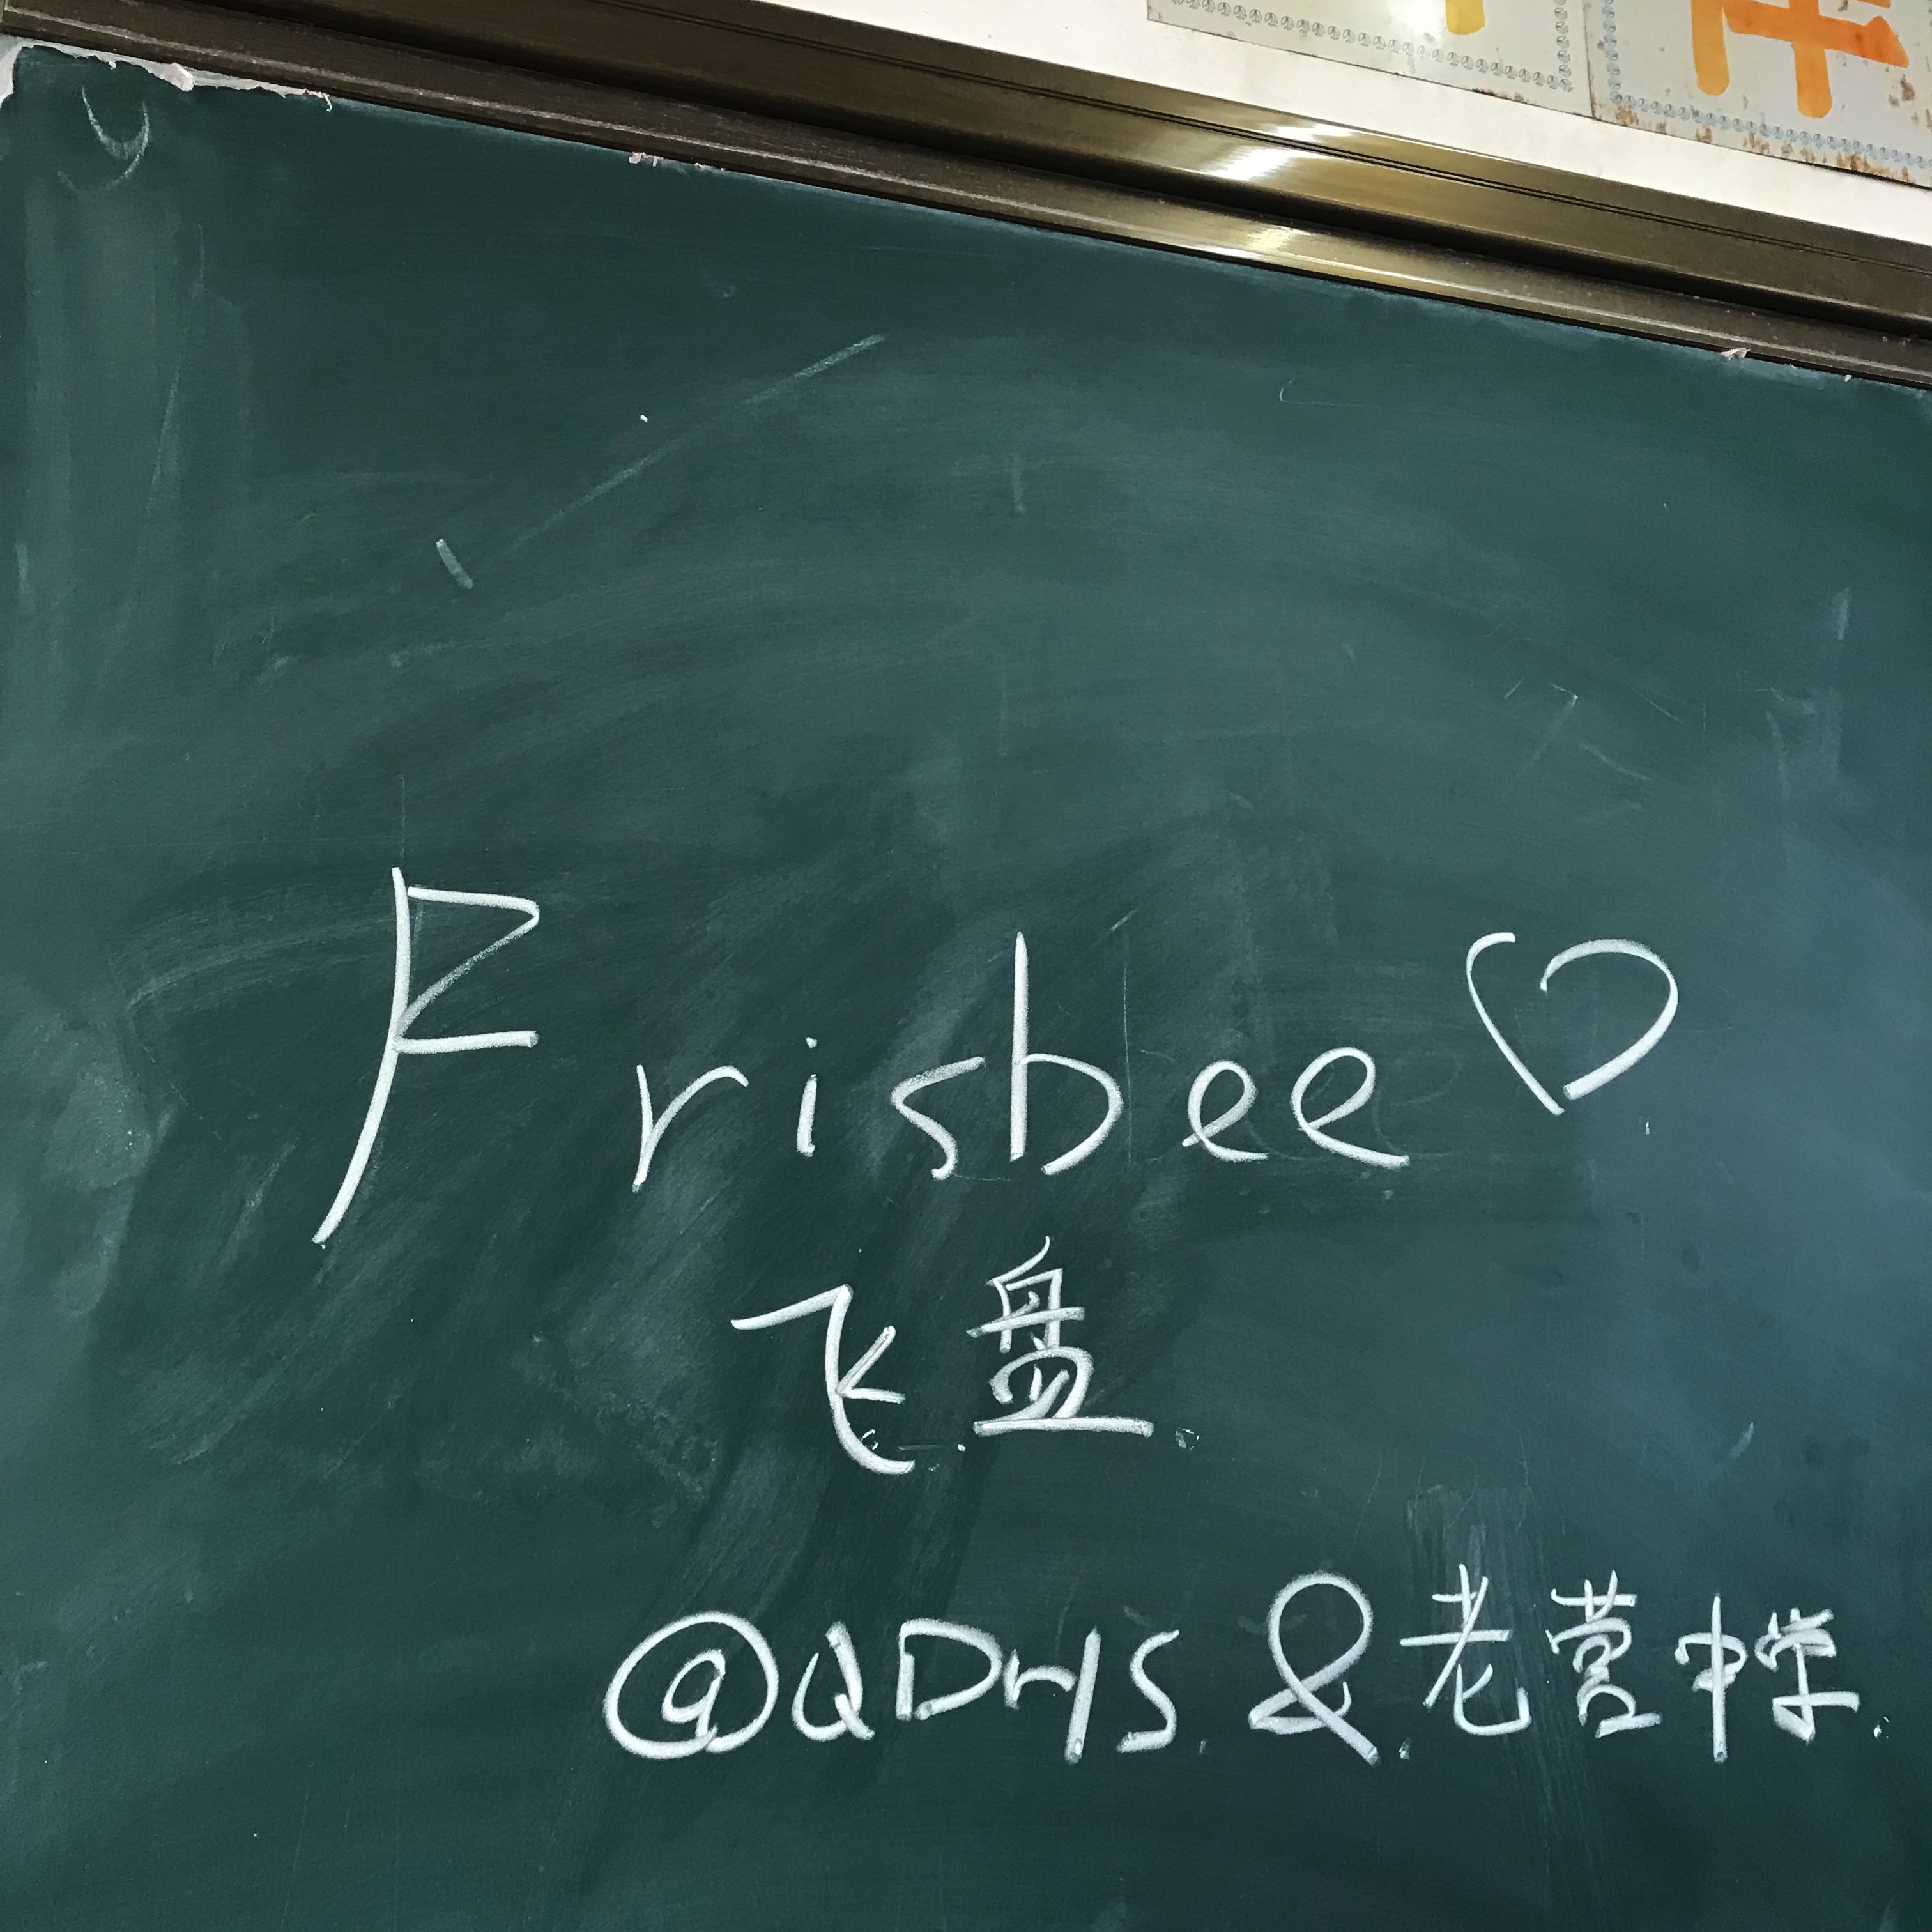 Frisbee♡
飞盘
@QDHS & 老营中学.